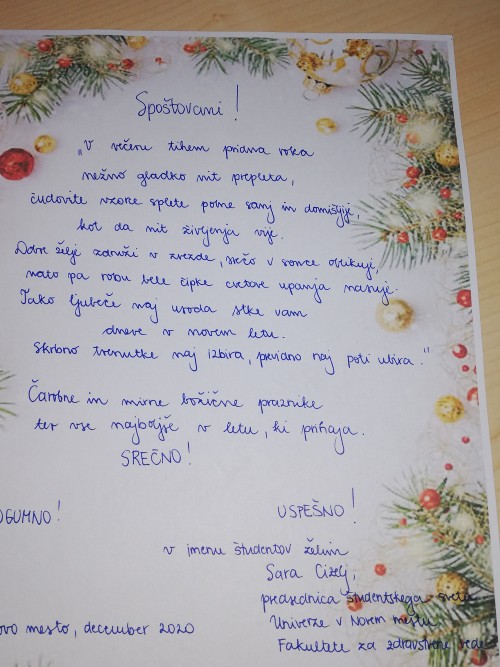 Spoštovani!
"V večeru tihem pridna roka
nežno gladko nit prepleta,
čudovite vzorce splete polne sanj in domišljije,
kot da nit življenja vije.
Dobre želje združi v zvezde, srečo v sonce oblikuje,
nato pa robu bele čipke cvetove upanja nasuje.
Tako ljubeče naj usoda stke vam
dneve v novem letu.
Skrbno trenutke naj izbira, previdno naj poti ubira."
Čarobne in mirne božične praznike
ter vse najboljše v letu, ki prihaja.
SREČNO!
OGUMNO! USPEŠNO!
v imenu študentov želim
Sara Cizelj,
predsednica študentskega sveta
Univerze v Novem mestu
ovo mesto, december 2020
Fakultete za zdravstvene vede